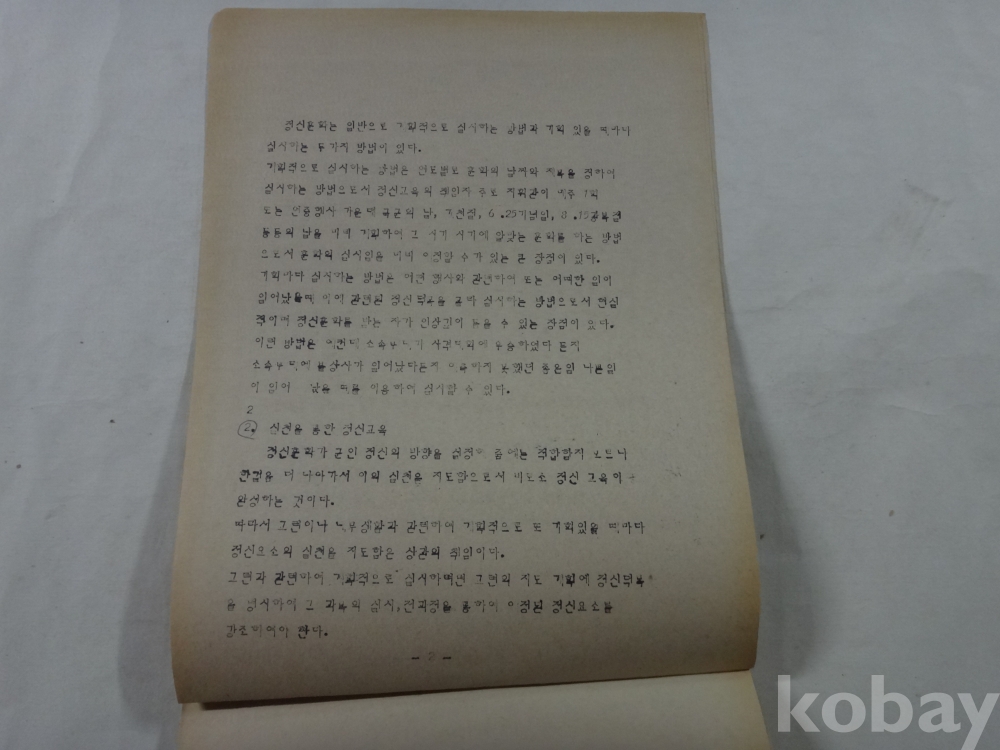 정신훈화는 일반으로 계획적으로 실시하는 방법과 기회 있을 때마다
실시하는 두가지 방법이 있다.
계획적으로 실시하는 방법은 연도별로 훈화의 날짜와 제목을 정하여
실시하는 방법으로서 정신교육의 책임자 주로 지휘관이 매주 1회
또는 연중행사 가운데 국군의 날, 개천절, 6.25기념일, 8.15광복절
등등의 날을 미리 계획하여 그 시기 시기에 알맞는 훈화를 하는 방법
으로서 훈화의 실시일을 미리 예정할 수가 있는 큰 장점이 있다.
기회마다 실시하는 방법은 어떤 행사와 관련하여 또는 어떠한 일이
일어났을때 이에 관련된 정신 덕목을 골라 실시하는 방법으로서 현실
적이며 정신훈화를 받는 자가 인상깊이 들을 수 있는 장점이 있다.
이런 방법은 예컨데 소속부대가 사격대회에 우승하였다 든지
소속부대에 불상사가 일어났다든지 예측하지 못했던 좋은일 나쁜일
이 일어 났을 때를 이용하여 실시할 수 있다.
2
2. 실천을 통한 정신교육
정신훈화가 군인 정신의 방향을 설정해 줌에는 적합할지 모르나
한걸음 더 나아가서 이의 실천을 지도함으로서 비로소 정신 교육이
완성하는 것이다.
따라서 그 훈련이나 내무생활과 관련하여 계획적으로 또 기회있을 때마다
정신요소의 실천을 지도함은 상관의 책임이다.
훈련과 관련하여 계획적으로 실시하려면 훈련의 지도 계획에 정신덕목
을 명시하여 그 과목의 실시, 전과정을 통하여 예정된 정신요소를
강조하여야 한다.
kobay